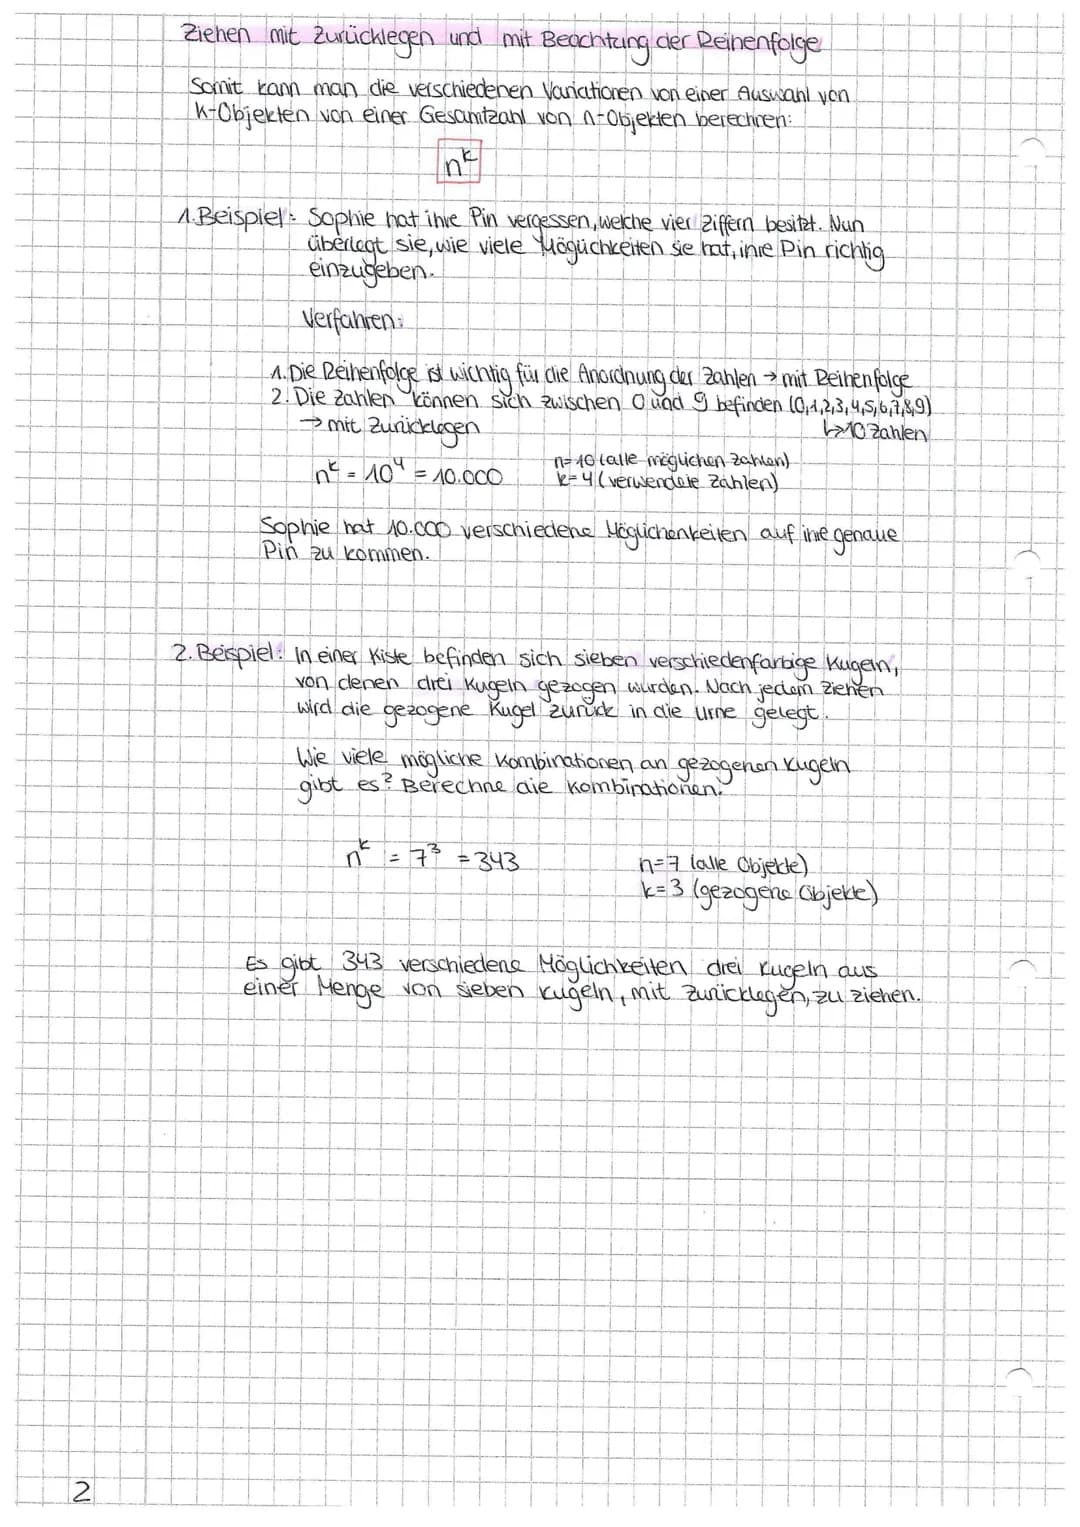 Ziehen mit Zurücklegen und mit Beachtung der Reihenfolge
Somit kann man die verschiedenen Variationen von einer Auswahl von
k-Objekten von einer Gesamtzahl von n-Objekten berechnen:
n^k
1. Beispiel: Sophie hat ihre Pin vergessen, welche vier Ziffern besitzt. Nun
überlegt sie, wie viele Möglichkeiten sie hat, ihre Pin richtig
einzugeben.
Verfahren:
1. Die Reihenfolge ist wichtig für die Anordnung der Zahlen → mit Reihenfolge
2. Die Zahlen können sich zwischen 0 und 9 befinden (0,1,2,3,4,5,6,7,8,9)
→ mit Zurücklegen ↳ 10 Zahlen
n^k = 10^4 = 10.000 n=10 (alle möglichen Zahlen)
k=4 (verwendete Zahlen)
Sophie hat 10.000 verschiedene Möglichenkeiten auf ihre genaue
Pin zu kommen.
2. Beispiel: In einer Kiste befinden sich sieben verschiedenfarbige Kugeln,
von denen drei Kugeln gezogen wurden. Nach jedem Ziehen
wird die gezogene Kugel zurück in die Urne gelegt.
Wie viele mögliche Kombinationen an gezogenen Kugeln
gibt es? Berechne die Kombinationen.
n^k = 7^3 = 343 n=7 (alle Objekte)
k=3 (gezogene Objekte)
Es gibt 343 verschiedene Möglichkeiten drei Kugeln aus
einer Menge von sieben Kugeln, mit Zurücklegen, zu ziehen.
2